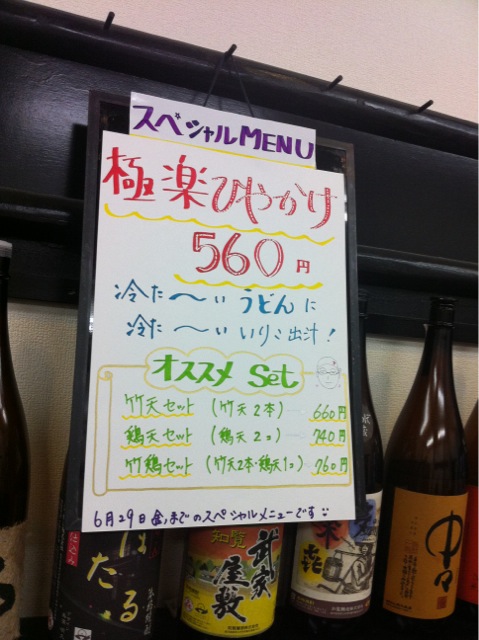 スペシャルMENU
極楽ひやかけ
560円
冷た〜いうどんに
冷た〜いいりこ出汁！
オススメ Set
竹天セット (竹天2本) 660円
鶏天セット (鶏天2コ) 740円
竹鶏セット (竹天2本・鶏天1コ) 760円
6月29日金、までのスペシャルメニューです
ほたる
知覧
武家
屋敷
中々